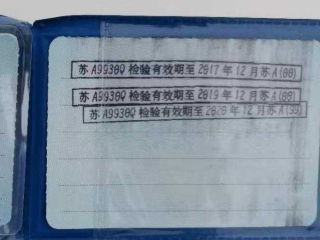 苏A9938Q检验有效期至2017年12月苏A(00)
苏A9938Q检验有效期至2019年12月苏A(00)
苏A9938Q检验有效期至2020年12月苏A(99)